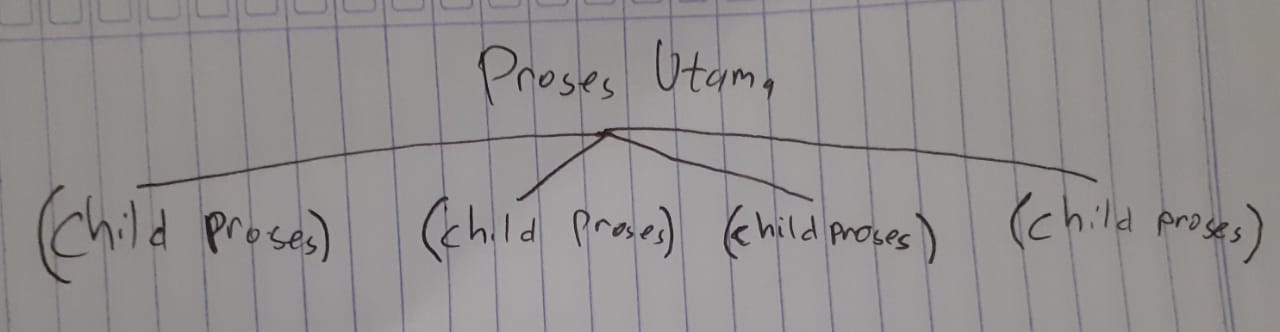 Proses Utama
(Child proses) (child proses) (child proses) (child proses)